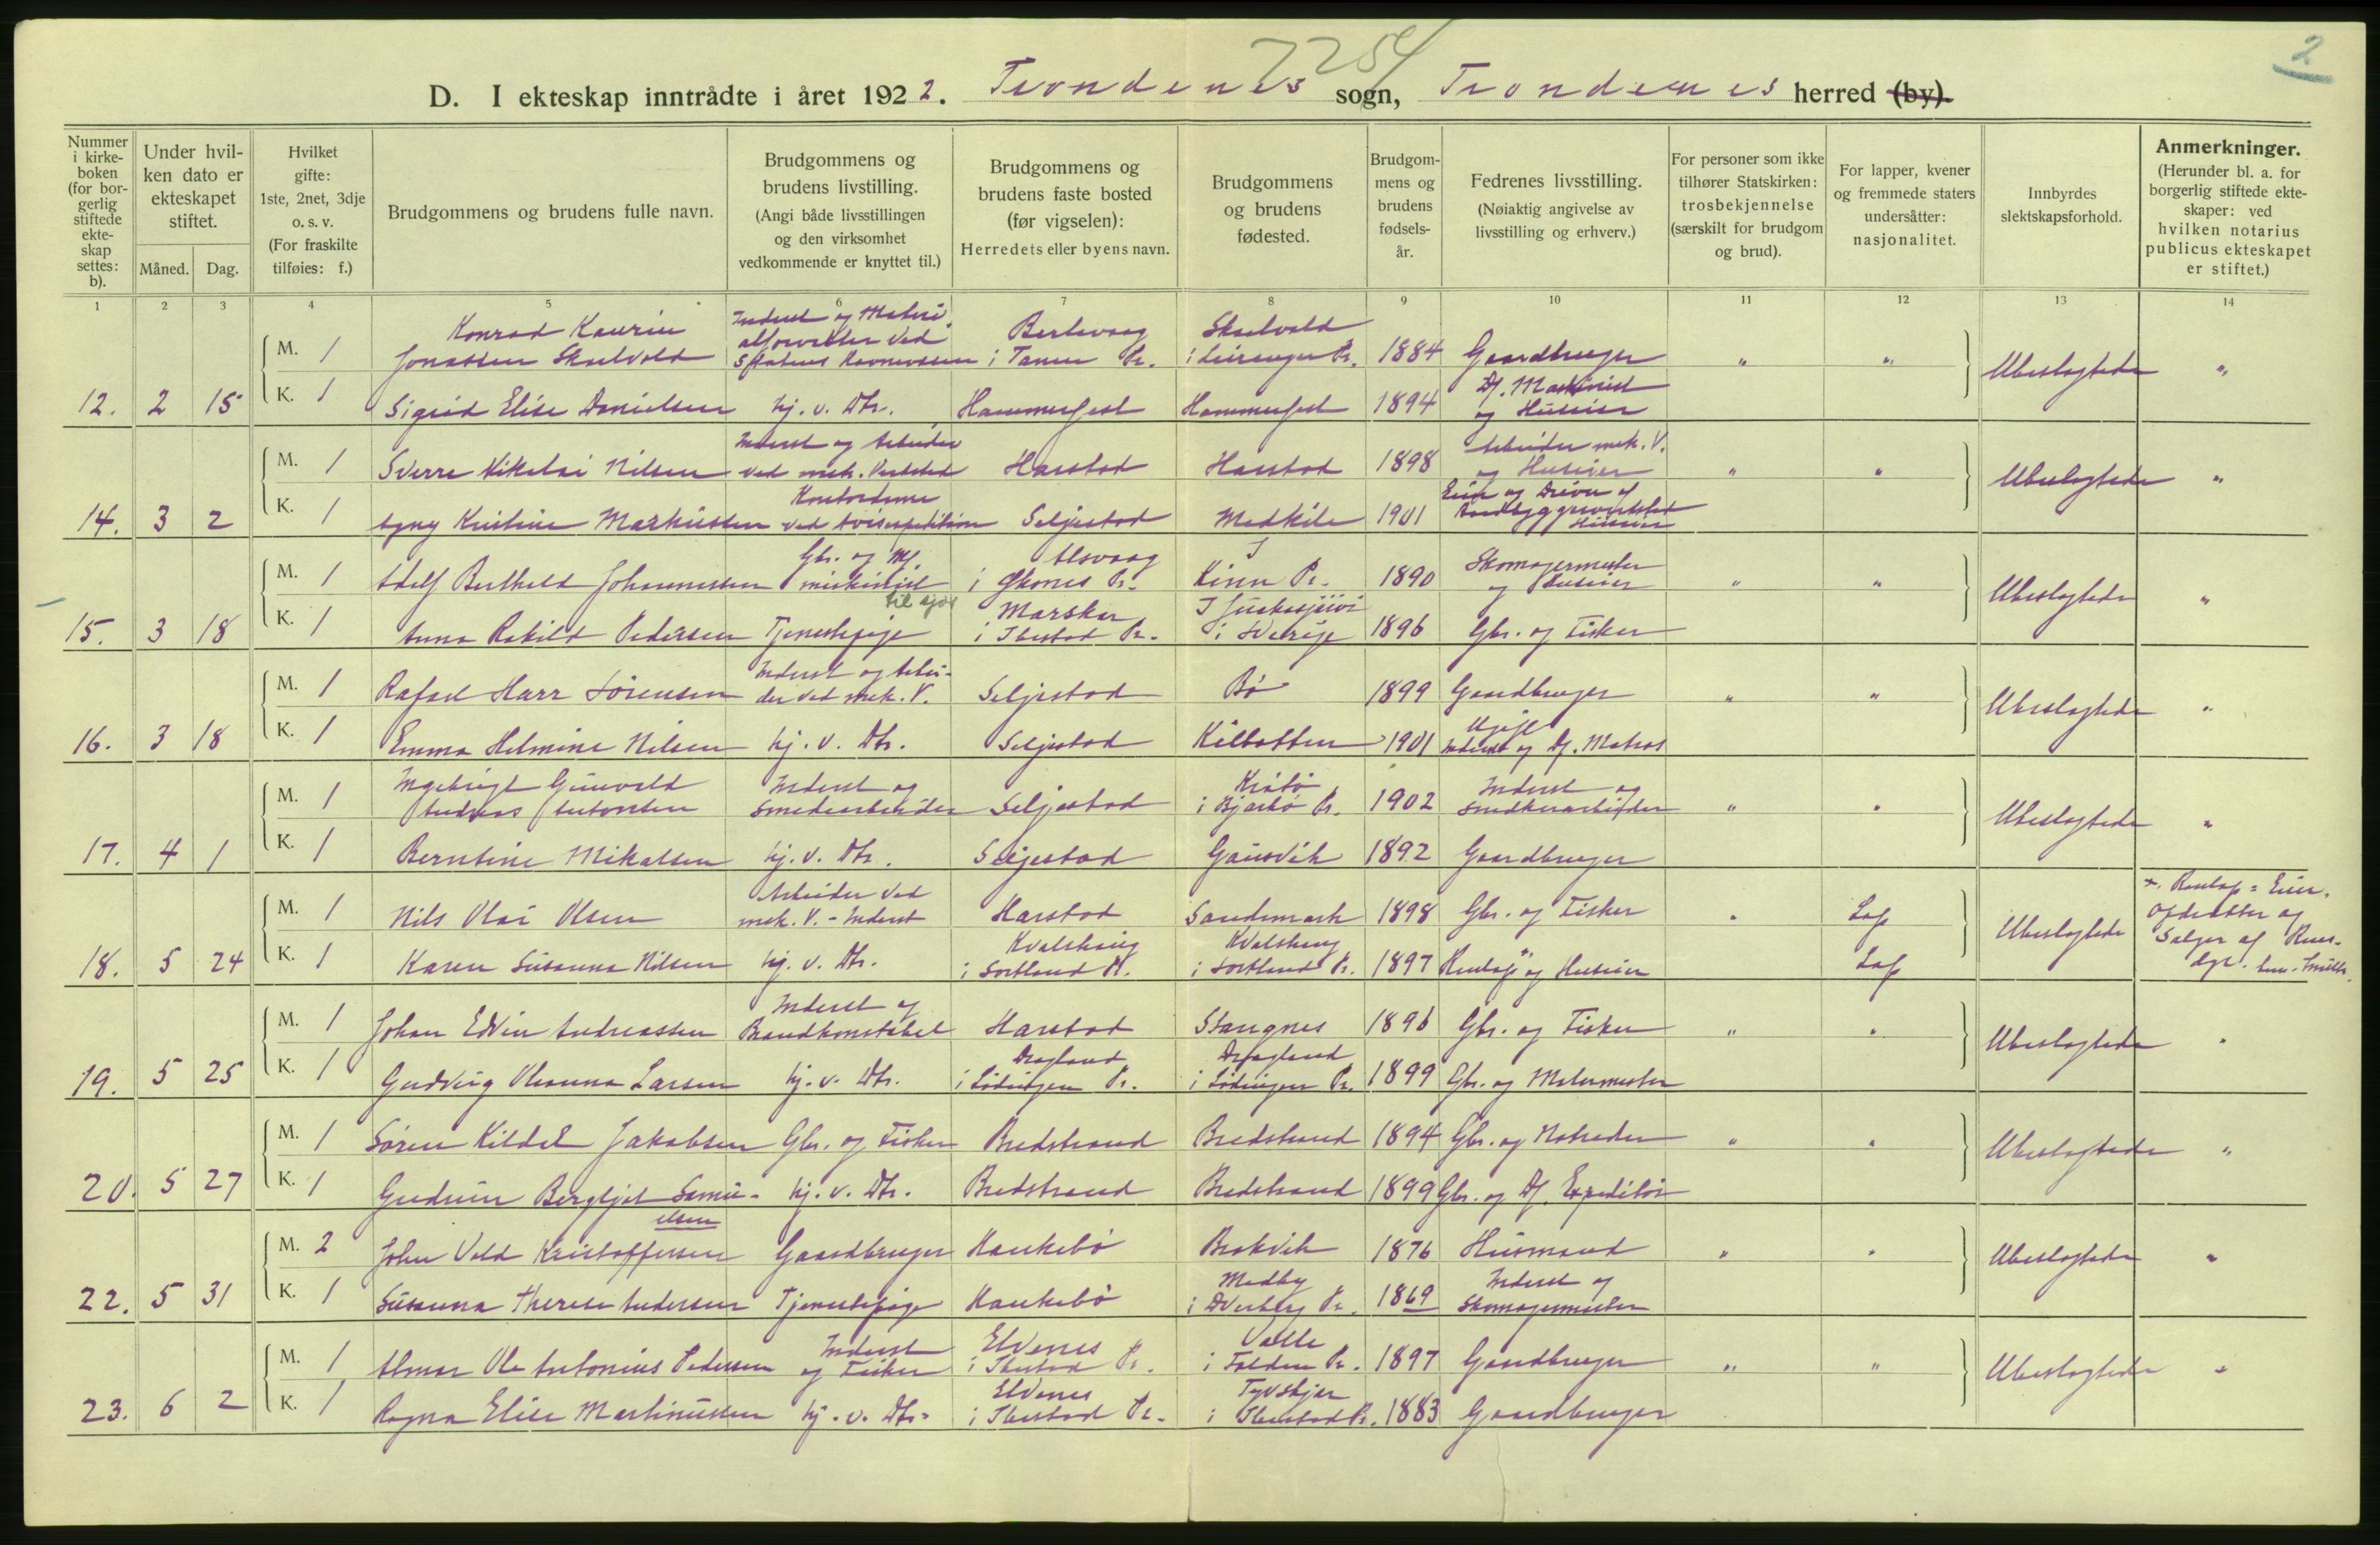 7254
2
D. I ekteskap inntrådte i året 1922. Trondenes sogn, Trondenes herred (by).
Nummer i kirke-boken (for bor-gerlig stiftede ekte-skap settes: b).
Under hvil-ken dato er ekteskapet stiftet.
Måned. Dag.
Hvilket gifte: 1ste, 2net, 3dje o. s. v. (For fraskilte tilføies: f.)
Brudgommens og brudens fulle navn.
Brudgommens og brudens livstilling. (Angi både livsstillingen og den virksomhet vedkommende er knyttet til.)
Brudgommens og brudens faste bosted (før vigselen): Herredets eller byens navn.
Brudgommens og brudens fødested.
Brudgom-mens og brudens fødsels-år.
Fedrenes livsstilling. (Nøiaktig angivelse av livsstilling og erhverv.)
For personer som ikke tilhører Statskirken: trosbekjennelse (særskilt for brudgom og brud).
For lapper, kvener og fremmede staters undersåtter: nasjonalitet.
Innbyrdes slektskapsforhold.
Anmerkninger. (Herunder bl. a. for borgerlig stiftede ekte-skaper: ved hvilken notarius publicus ekteskapet er stiftet.)
1 2 3 4 5 6 7 8 9 10 11 12 13 14
Konrad Kaurin Inderst og Materi- Berlevaag Skjelvold
M. 1 Jonassen Skjelvold alforvalter ved Statens Havnevæsen i Tanen Pr. i Leiranger Pr. 1884 Gaardbruger " " Ubeslægtede "
12. 2 15 K. 1 Sigrid Elise Danielsen hj. v. Dtr. Hammerfest Hammerfest 1894 Df. Maskinist og Huseier
M. 1 Sverre Nikolai Nilsen Inderst og Arbeider ved mek. Verksted Harstad Harstad 1898 Arbeider mek. V. og Huseier " " Ubeslægtede "
14. 3 2 K. 1 Agny Kristine Markussen Kontordame ved Avisexpedition Seljestad Medkile 1901 Eier og Driver af
M. 1 Adolf Berthold Johannessen Gbr. og Mf. maskinist til sjøs Alsvaag i Øksnes Pr. Kinn Pr. 1890 Skomagermester og Huseier " " Ubeslægtede "
15. 3 18 K. 1 Anna Rakild Pedersen Tjenestepige i Ibestad Pr. i Sverige 1896 Gbr. og Fisker
M. 1 Rafael Harr Sörensen Inderst og Arbei-der ved mek. V. Seljestad Bö 1899 Gaardbruger " " Ubeslægtede "
16. 3 18 K. 1 Emma Helmine Nilsen hj. v. Dtr. Seljestad Kilbotten 1901 Ugift Inderst og Df. Matros
M. 1 Ingebrigt Gunvald Andreas Antonsen Inderst og Smedearbeider Seljestad i Bjarkö Pr. 1902 Inderst og Snedkerarbeider " " Ubeslægtede "
17. 4 1 K. 1 Berntine Mikalsen hj. v. Dtr. Seljestad Gausvik 1892 Gaardbruger
M. 1 Nils Olai Olsen Arbeider ved mek. V. - Inderst Harstad Sandemark 1898 Gbr. og Fisker " Lap Ubeslægtede x. Renlap = Eier, Opdrætter og Sælger af Rens-
18. 5 24 K. 1 Karen Susanna Nilsen hj. v. Dtr. Kvalshaug i Sortland Pr. Kvalshaug i Sortland Pr. 1897 Renlap x og Huseier Lap
M. 1 Johan Edvin Andreassen Inderst og Brandkonstabel Harstad Stangnes 1896 Gbr. og Fisker " " Ubeslægtede "
19. 5 25 K. 1 Gudveig Oleanna Larsen hj. v. Dtr. Dragland i Lödingen Pr. Dragland i Lödingen Pr. 1899 Gbr. og Malermester
M. 1 Sören Kildal Jakobsen Gbr. og Fisker Bredstrand Bredstrand 1894 Gbr. og Notreder " " Ubeslægtede "
20. 5 27 K. 1 Gudrun Bergljot Samu-elsen hj. v. Dtr. Bredstrand Bredstrand 1899 Gbr. og Df. Expeditör
M. 2 John Vold Kristoffersen Gaardbruger Haukebö Brokvik 1876 Husmand " " Ubeslægtede "
22. 5 31 K. 1 Susanna Therese Andersen Tjenestepige Haukebö Medby i Dverberg Pr. 1869 Inderst og Skomagermester
M. 1 Almar Ole Antonius Pedersen Inderst og Fisker Elvenes i Ibestad Pr. Valle i Folden Pr. 1897 Gaardbruger " " Ubeslægtede "
23. 6 2 K. 1 Ragna Elise Martinussen hj. v. Dtr. Elvenes i Ibestad Pr. i Ibestad Pr. 1883 Gaardbruger